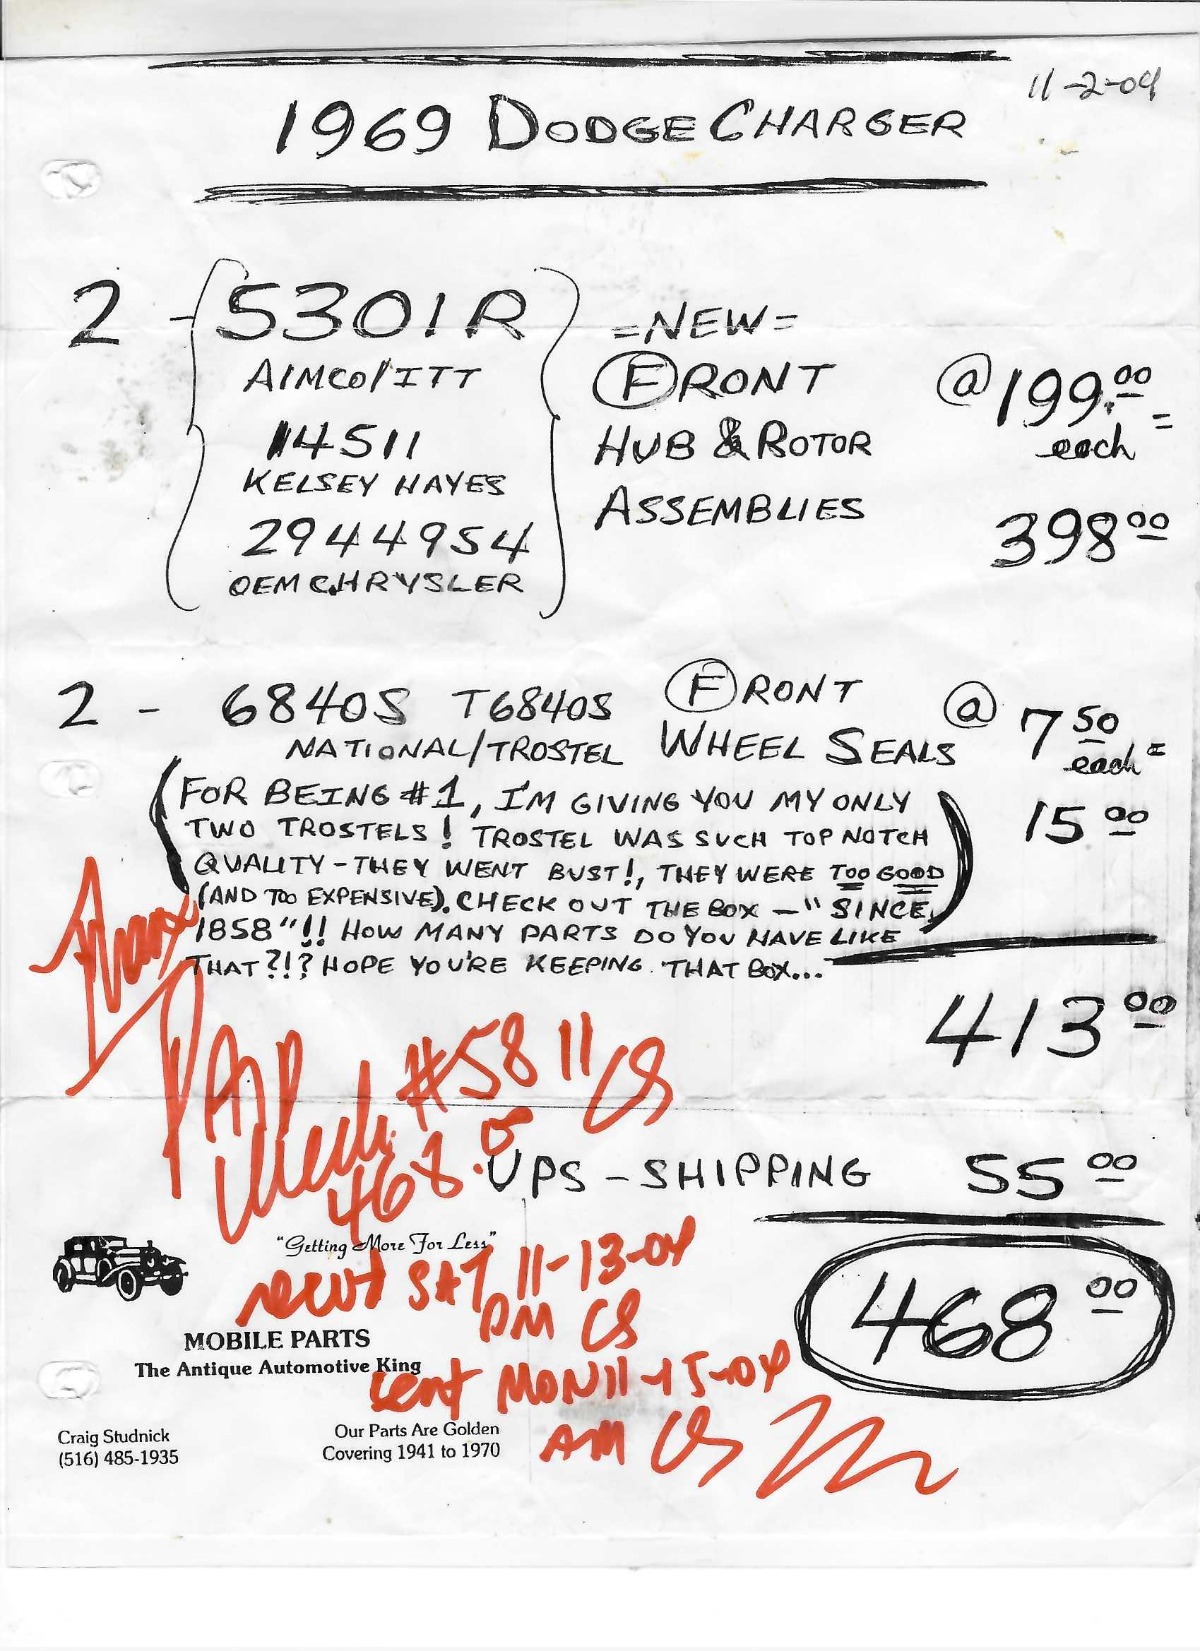 11-2-04
1969 DODGE CHARGER
2 - 5301R =NEW=
AIMCO/ITT FRONT @ 199.00 each =
14511 HUB & ROTOR
KELSEY HAYES
2944954 ASSEMBLIES 398 00
OEM CHRYSLER
2 - 6840S T6840S FRONT @ 7 50 each =
NATIONAL/TROSTEL WHEEL SEALS
(FOR BEING #1, I'M GIVING YOU MY ONLY 15 00
TWO TROSTELS! TROSTEL WAS SUCH TOP NOTCH
QUALITY - THEY WENT BUST!, THEY WERE TOO GOOD
(AND TOO EXPENSIVE). CHECK OUT THE BOX - "SINCE)
1858"!! HOW MANY PARTS DO YOU HAVE LIKE
THAT?!? HOPE YOU'RE KEEPING THAT BOX...
413 00
Thanx
PAID
Check #5811 CS
468.00
UPS - SHIPPING 55 00
468 00
"Getting More For Less"
recvd SAT 11-13-04
PM CS
MOBILE PARTS
The Antique Automotive King
sent MON 11-15-04
AM CS
Craig Studnick
(516) 485-1935
Our Parts Are Golden
Covering 1941 to 1970